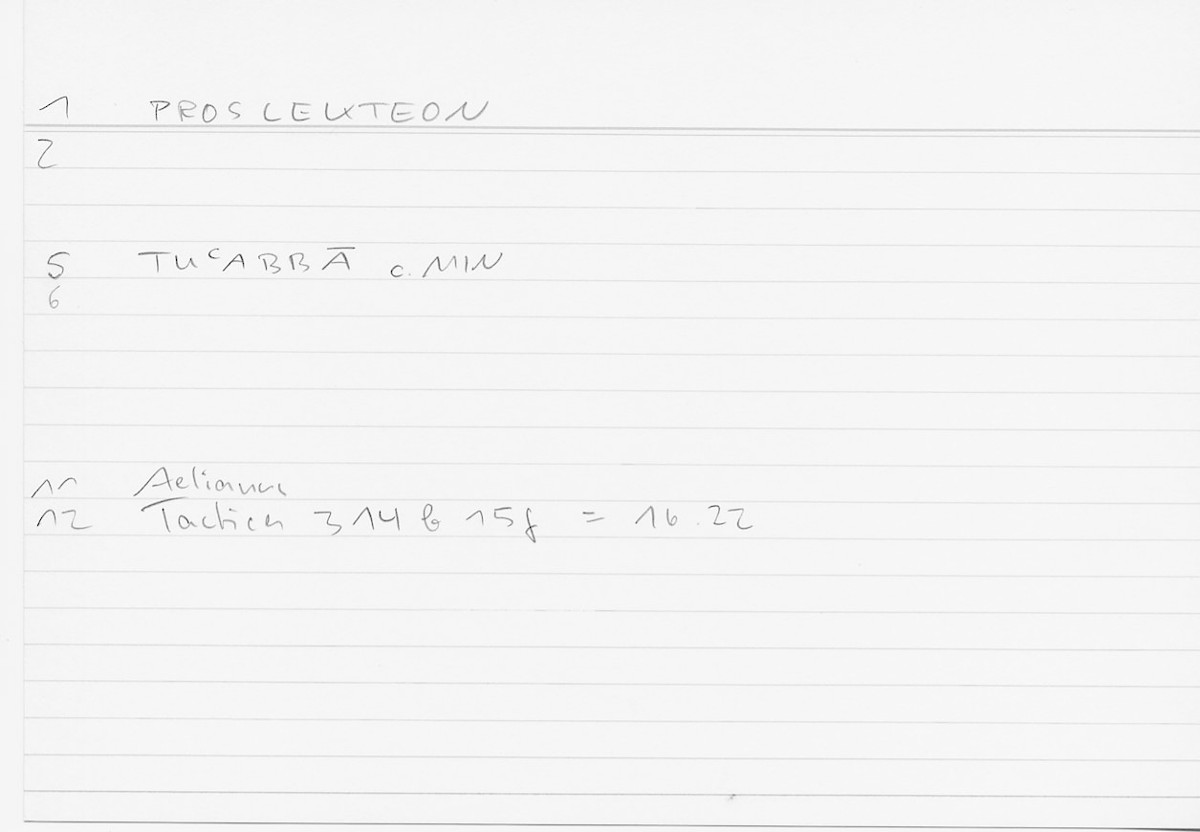 1 PROS LEKTEON
2
5 TUᶜABBĀ c. MIN
6
11 Aelianus
12 Tactica 314 b 15f = 16.22